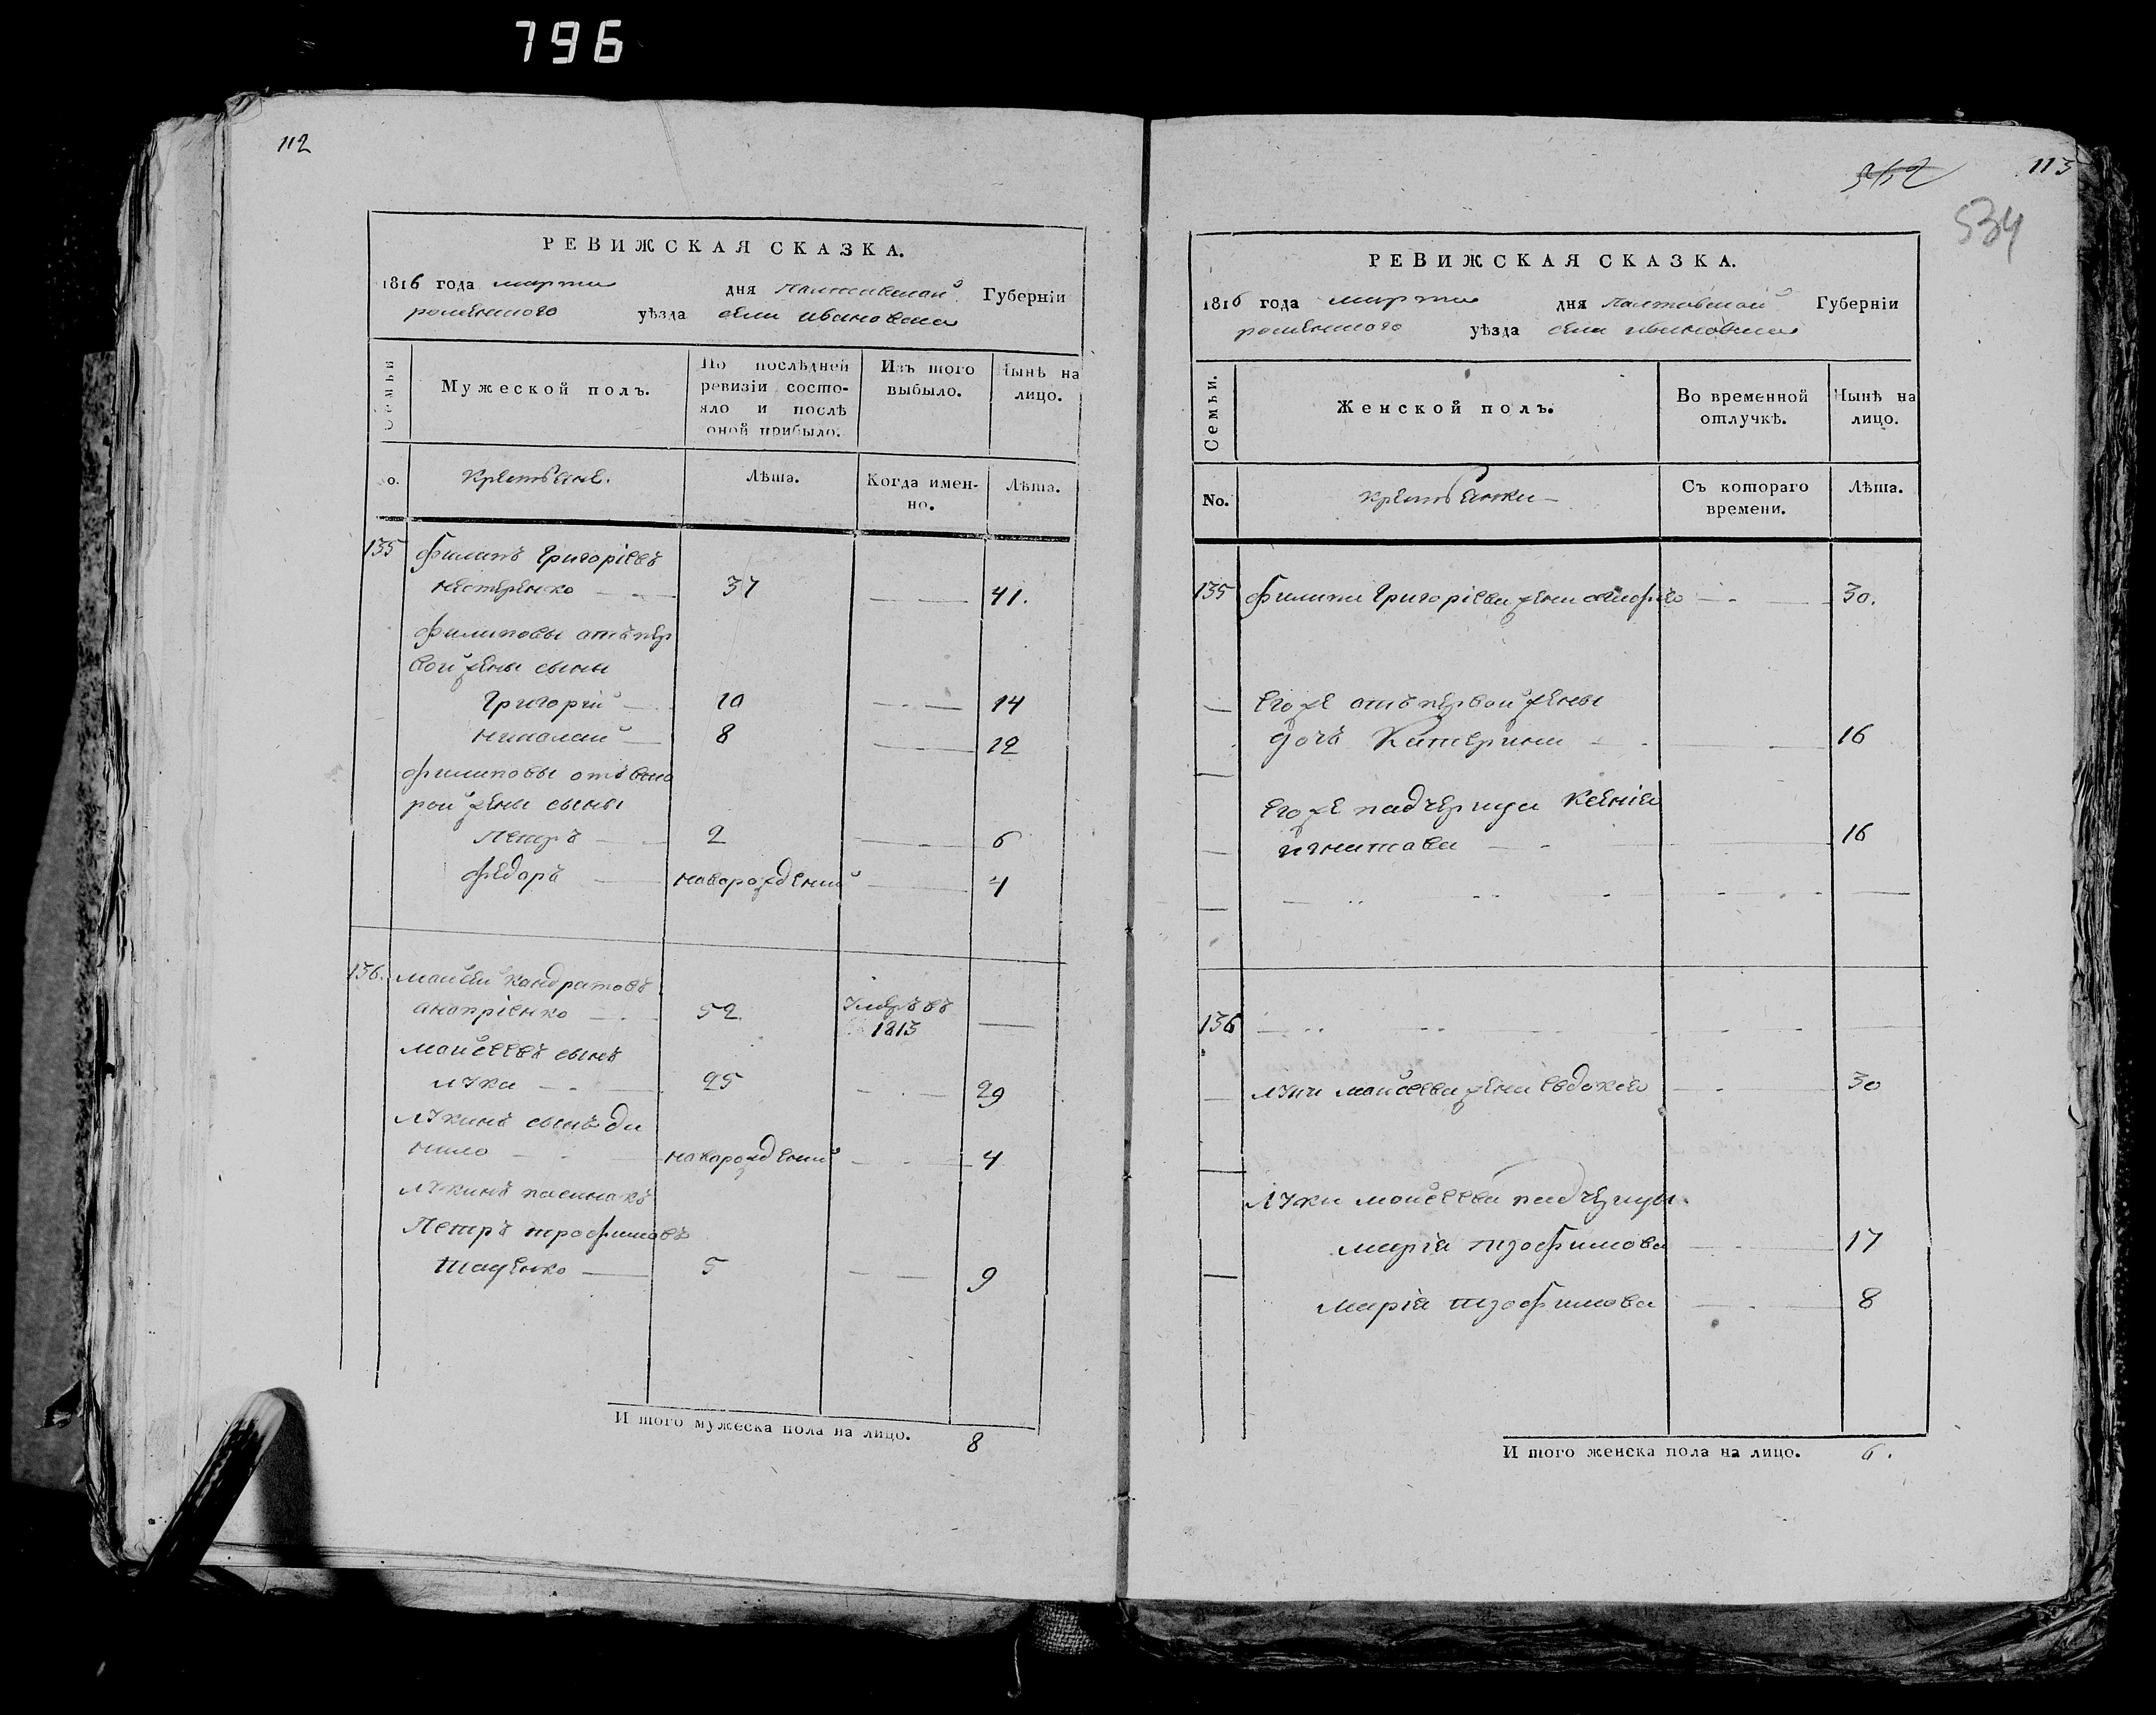 796
112
РЕВИЖСКАЯ СКАЗКА.
1816 года марта дня полтавской Губерніи
роменского уѣзда села ивановки
Семьи
Мужеской полъ.
По послѣдней ревизіи состояло и послѣ оной прибыло.
Изъ того выбыло.
Нынѣ на лицо.
No. Крестьяне. Лѣта. Когда именно. Лѣта.
135 филипъ Григоріевъ
нестеренко 37 41.
филиповы отъ пер
вой жены сыны
Григорій 10 14
николай 8 12
филиповы отъ вто
рой жены сыны
Петръ 2 6
федоръ новорожденный 4
136. Мойсей кондратовъ
анопріенко 52 умеръ въ 1813
Мойсеевъ сынъ
лука 25 29
лукинъ сынъ да
нило новорожденный 4
лукинъ пасинокъ
Петръ трофимовъ
тищенко 5 9
И того мужеска пола на лицо. 8
113
534
РЕВИЖСКАЯ СКАЗКА.
1816 года марта дня полтавской Губерніи
роменского уѣзда села ивановки
Семьи.
Женской полъ.
Во временной отлучкѣ.
Нынѣ на лицо.
No. крестьянки Съ котораго времени. Лѣта.
135 филипа Григоріева жена 30.
его же отъ первой жены
дочь Катерина 16
его же падчерица Ксенія
игнатова 16
136
луки мойсеева жена евдокія 30
луки мойсеева падчерицы
марія трофимова 17
марія трофимова 8
И того женска пола на лицо. 6.